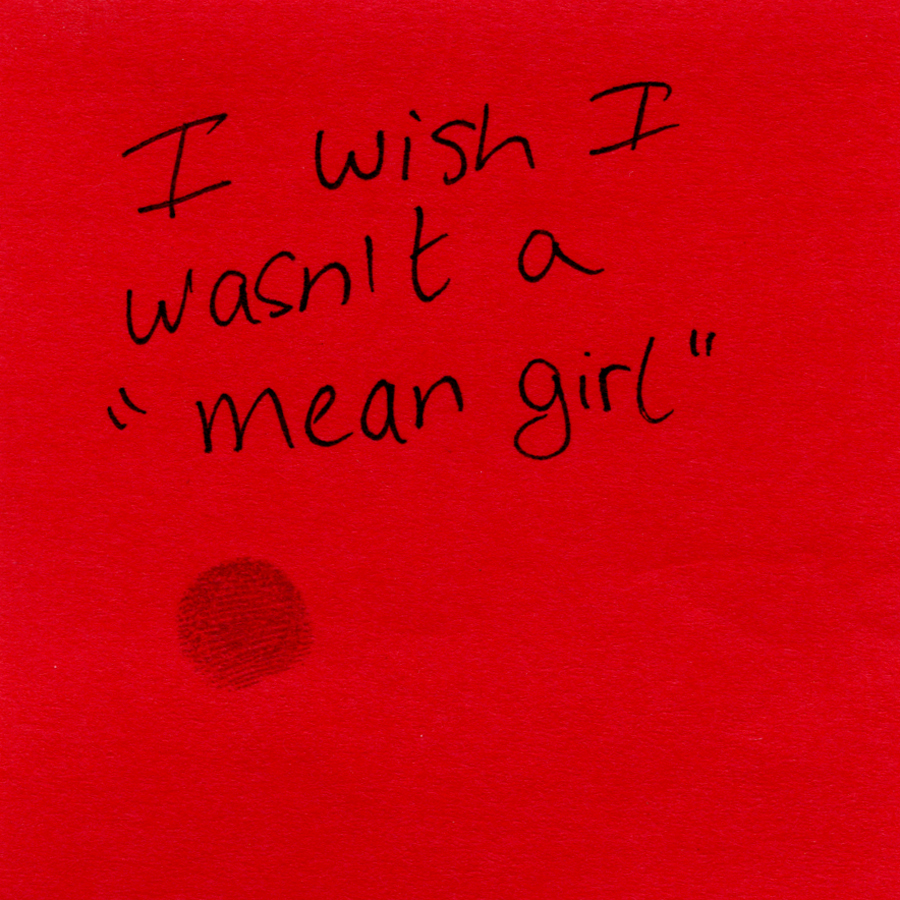 I wish I
wasn't a
"mean girl"